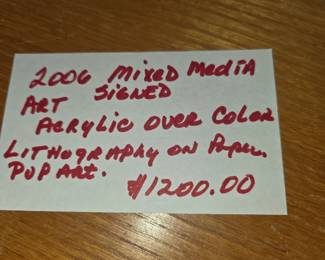 2006 Mixed Media
Art Signed
Acrylic over Color
Lithography on Paper.
Pop Art.
$1200.00